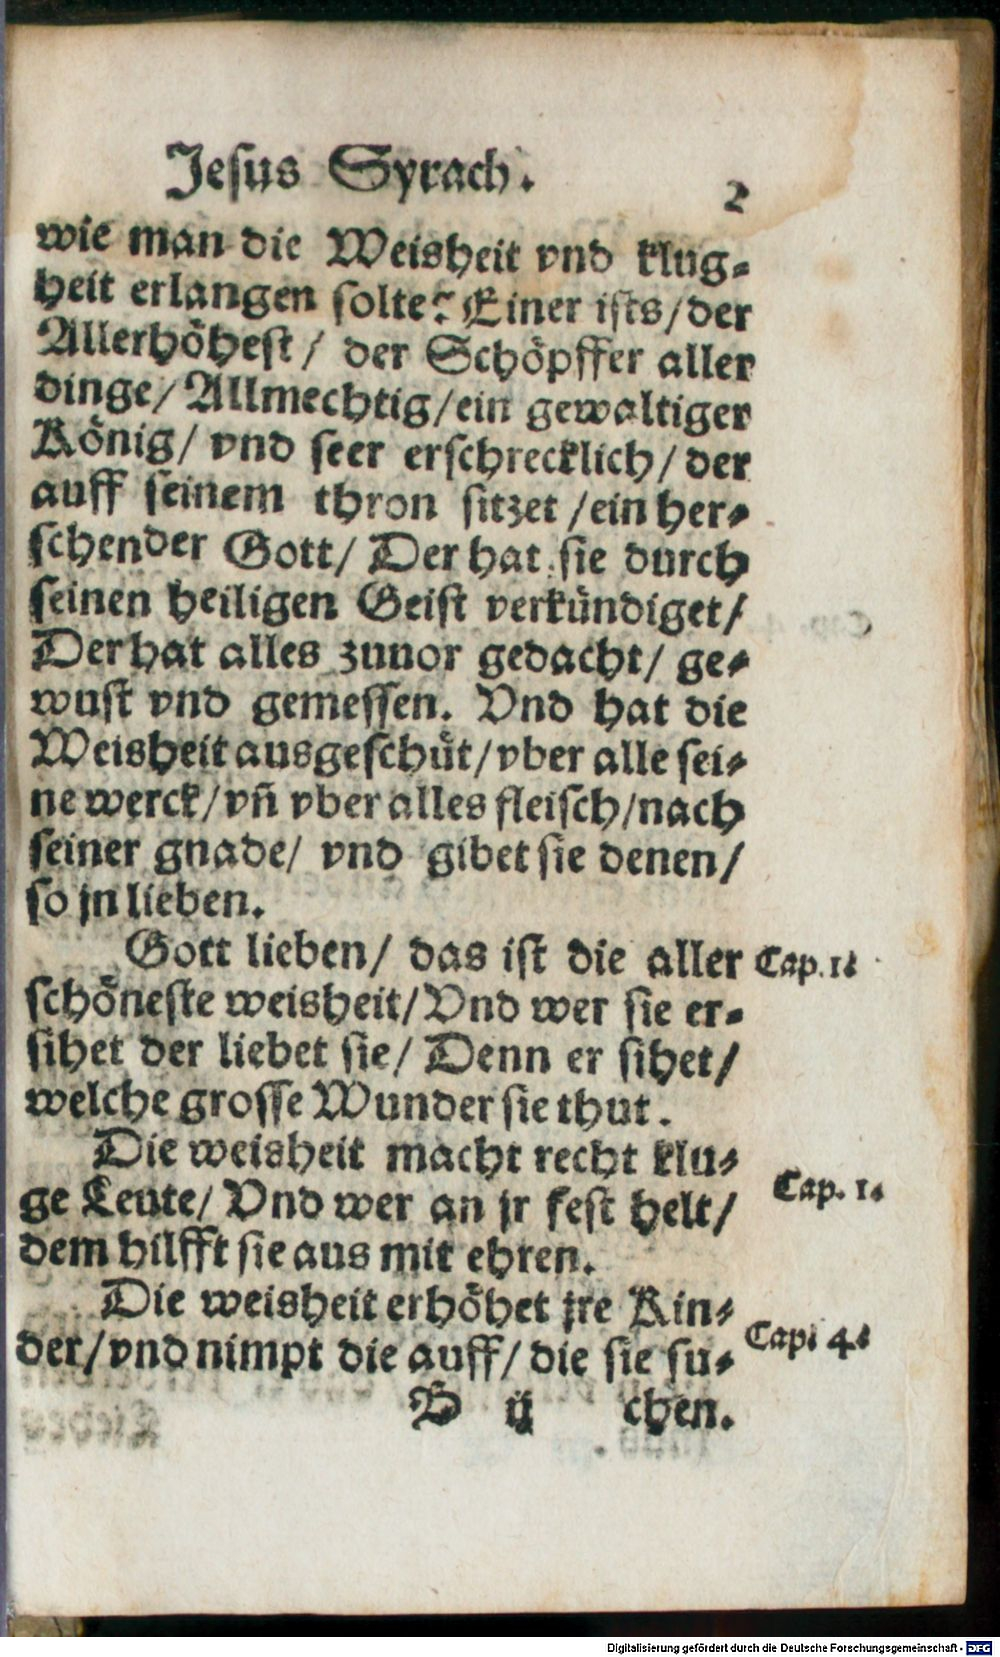 Jesus Syrach.
2
wie man die Weisheit vnd klug-
heit erlangen solte? Einer ists/der
Allerhöhest/ der Schöpffer aller
dinge/Allmechtig/ein gewaltiger
König/ vnd seer erschrecklich/der
auff seinem thron sitzet /ein her-
schender Gott/ Der hat sie durch
seinen heiligen Geist verkündiget/
Der hat alles zuuor gedacht/ ge-
wust vnd gemessen. Vnd hat die
Weisheit ausgeschüt/vber alle sei-
ne werck/vñ vber alles fleisch/nach
seiner gnade/ vnd gibet sie denen/
so jn lieben.
Gott lieben/ das ist die aller Cap. 1.
schöneste weisheit/Vnd wer sie er-
sihet der liebet sie/ Denn er sihet/
welche grosse Wunder sie thut.
Die weisheit macht recht klu-
ge Leute/ Vnd wer an jr fest helt/ Cap. 1.
dem hilfft sie aus mit ehren.
Die weisheit erhöhet jre Kin-
der/vnd nimpt die auff/ die sie su- Cap. 4.
B ij chen.
Digitalisierung gefördert durch die Deutsche Forschungsgemeinschaft - DFG